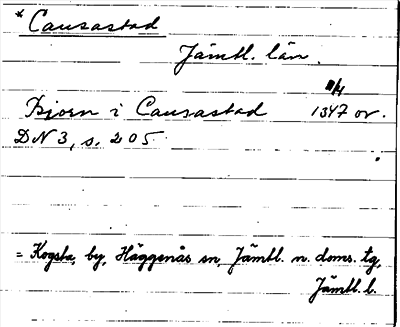 * Causastad
Jämtl. län.
11/4
Bjorn i Causastad 1347 or.
DN 3, s. 205.
= Kogsta, by, Häggenås sn, Jämtl. n. doms. tg,
Jämtl. l.